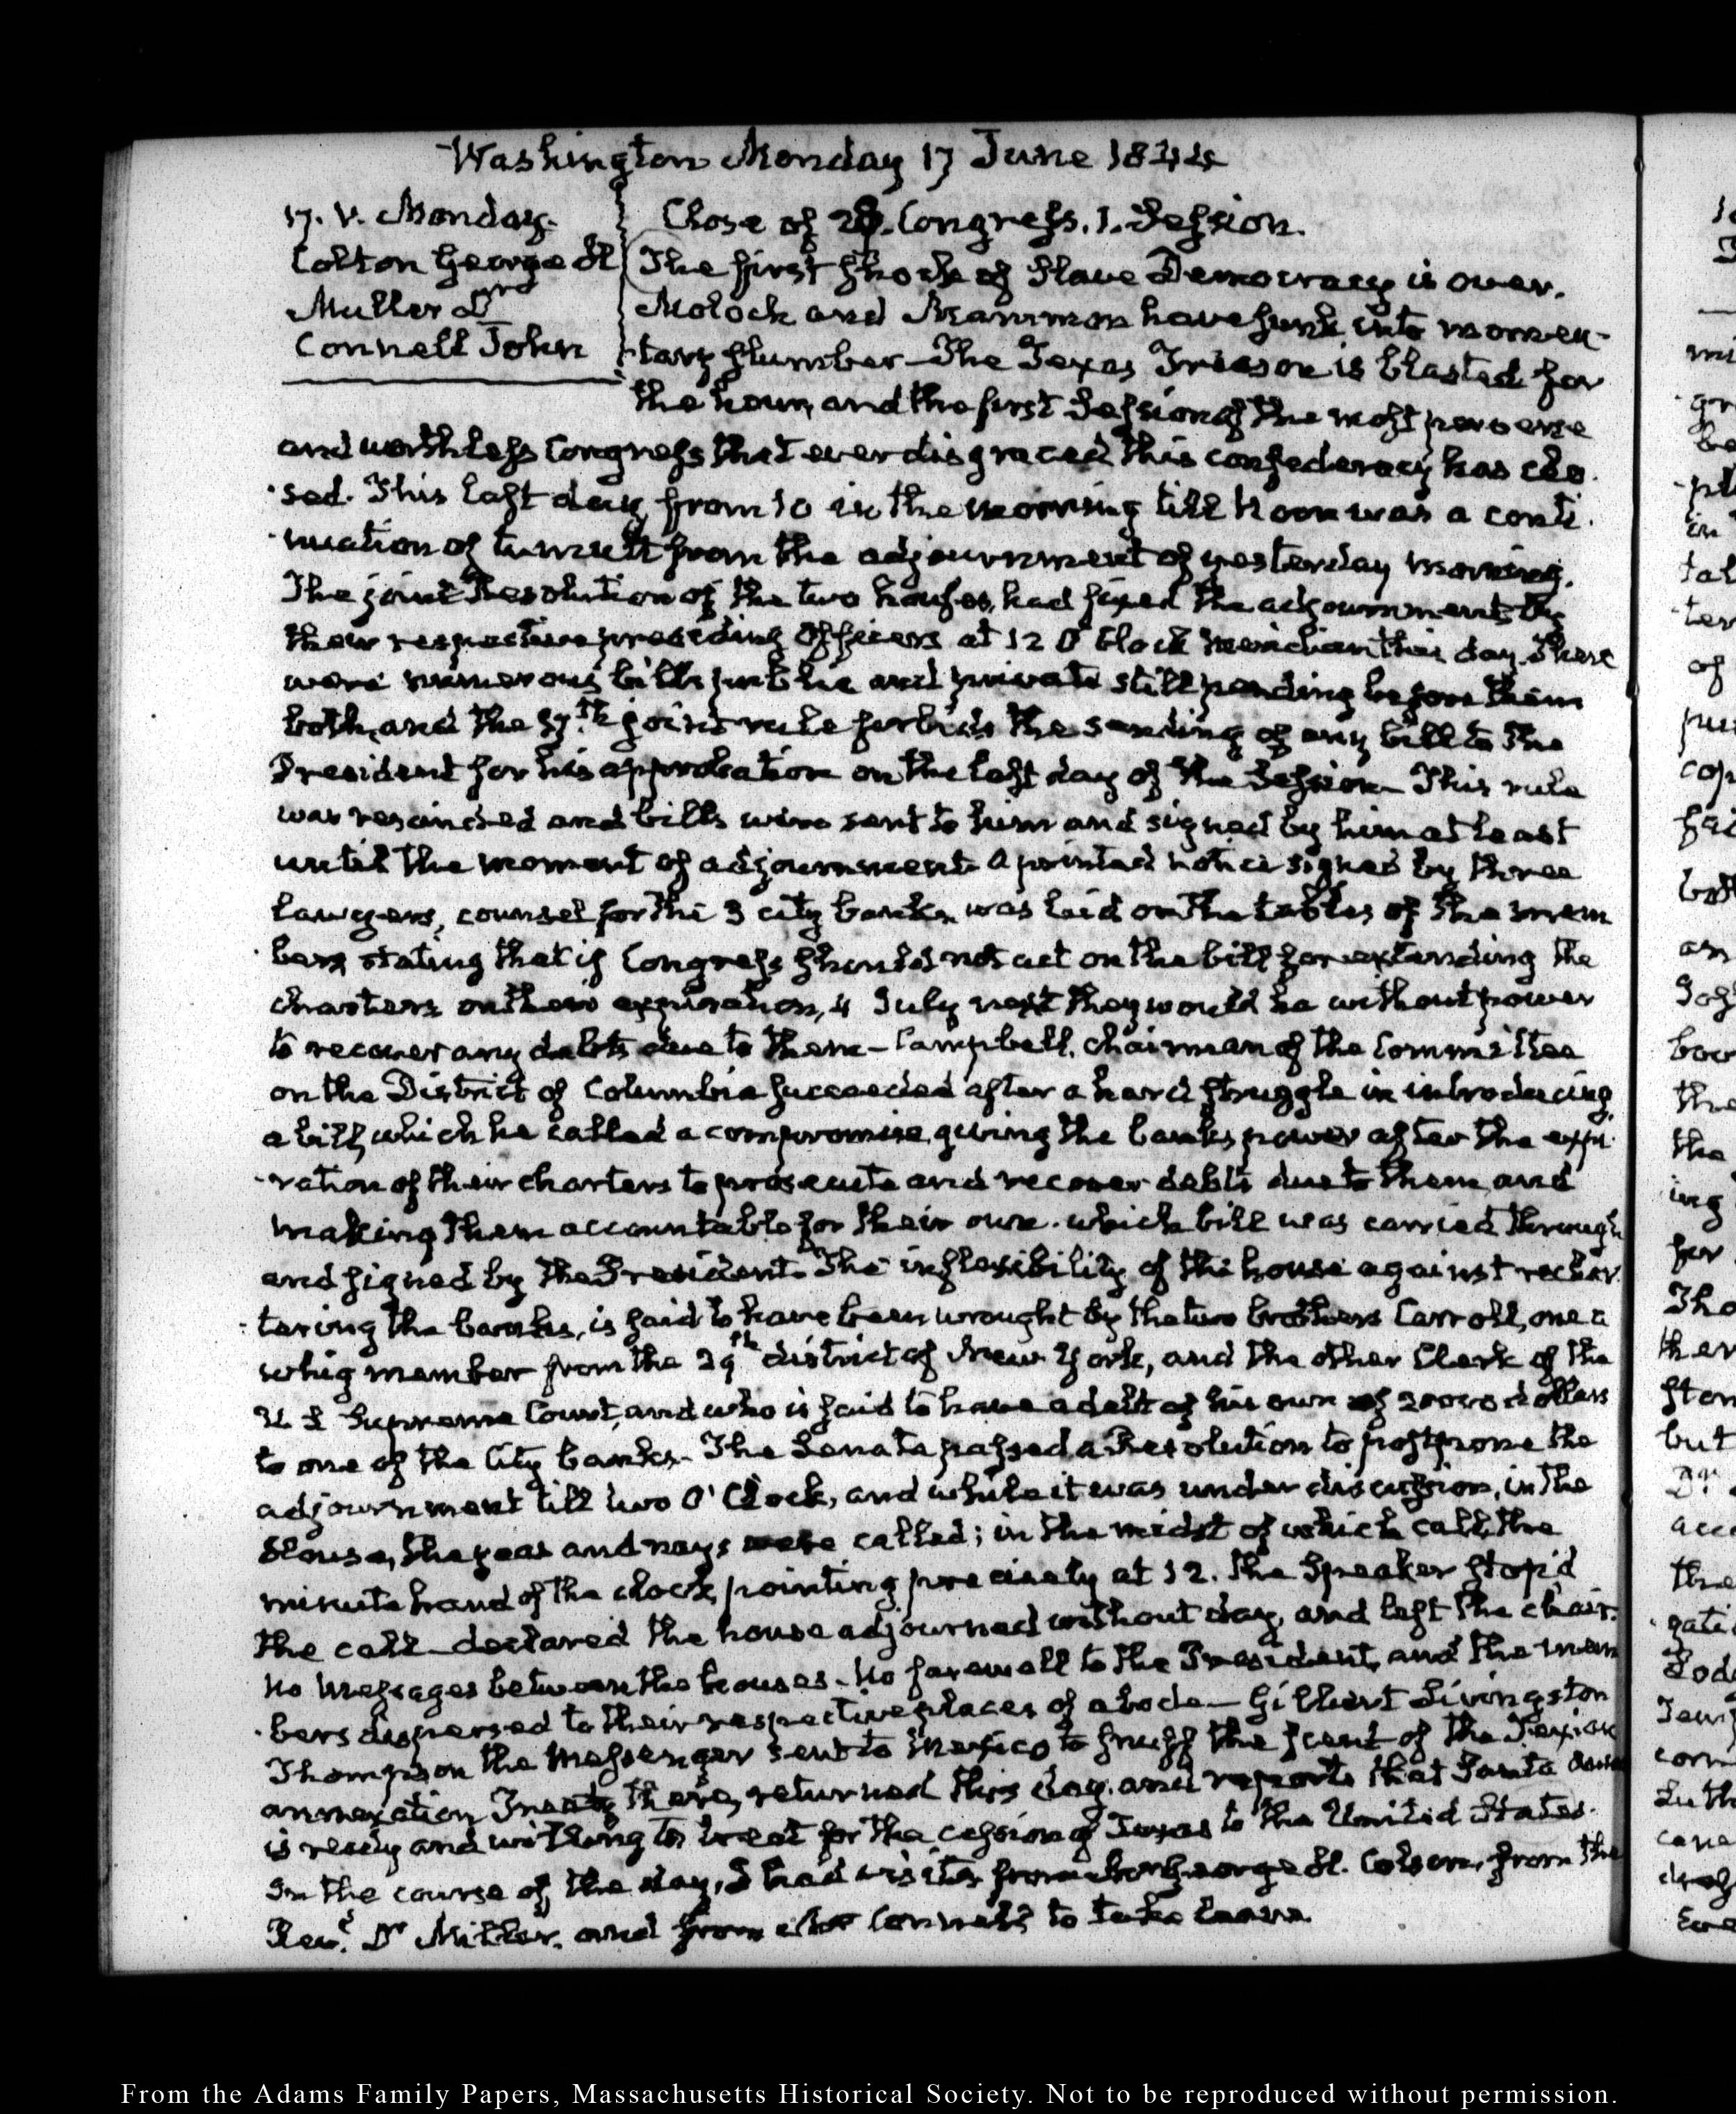 Washington Monday 17 June 1844
17. V. Monday.
Colton George H
Muller Dr
Connell John
Close of 28. Congress. 1. Session.
The first shock of Slave Democracy is over.
Moloch and Mammon have sunk into momen-
tary slumber — The Texas Treason is blasted for
the hour, and the first Session of the most perverse
and worthless Congress that ever disgraced this confederacy has clo-
sed. This last day from 10 in the morning till Noon was a conti-
nuation of tumult from the adjournment of yesterday morning.
The joint Resolution of the two houses, had fixed the adjournment by
their respective presiding Officers at 12 O'Clock meridian this day. There
were numerous bills public and private still pending before them
both, and the 17th joint rule forbids the sending of any bill to the
President for his approbation on the last day of the Session — This rule
was rescinded and bills were sent to him and signed by him at least
until the moment of adjournment. A printed notice signed by three
lawyers, counsel for the 3 city banks, was laid on the tables of the mem
bers stating that if Congress should not act on the bill for extending the
charters on their expiration, 4 July next they would be without power
to recover any debts due to them — Campbell, chairman of the Committee
on the District of Columbia succeeded after a hard struggle in introducing
a bill, which he called a compromise, giving the banks power after the expi-
ration of their charters to prosecute and recover debts due to them, and
making them accountable for their own. which bill was carried through
and signed by the President. The inflexibility of the house against rechar-
tering the banks, is said to have been wrought by the two brothers Carroll, one a
whig member from the 29th district of New York, and the other Clerk of the
U S Supreme Court, and who is said to have a debt of his own of 20000 dollars
to one of the City banks — The Senate passed a Resolution to postpone the
adjournment till two O'Clock, and while it was under discussion, in the
House, the yeas and nays were called; in the midst of which call, the
minute hand of the clock, pointing precisely at 12. the Speaker stop'd
the call — declared the house adjourned without day, and left the chair.
No messages between the houses — No farewell to the President, and the mem
bers dispersed to their respective places of abode — Gilbert Livingston
Thompson the Messenger sent to Mexico to snuff the scent of the Texian
annexation Treaty there, returned this day. and reports that Santa Anna
is ready and willing to treat for the cession of Texas to the United States.
In the course of the day, I had visits from George H. Colton, from the
Revd Dr Miller, and from Connell to take leave.
From the Adams Family Papers, Massachusetts Historical Society. Not to be reproduced without permission.